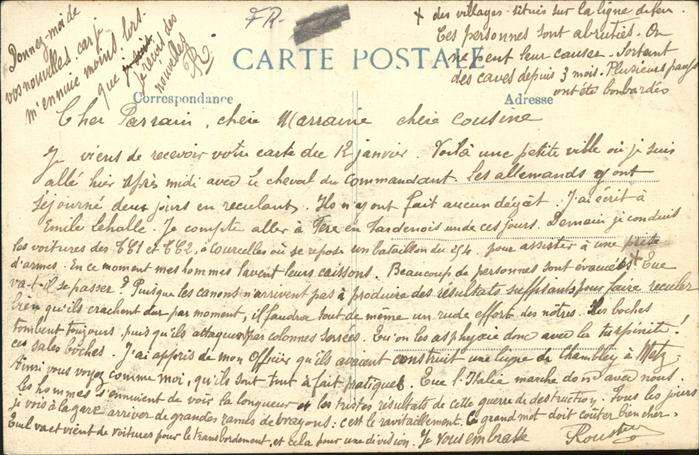 Donnez-moi de
vos nouvelles car je
m'ennuie moins lors
que je reçois des
nouvelles
R
FR-
+ des villages situés sur la ligne de feu.
Ces personnes sont abruties. On
ne peut leur causer. Sortant
des caves depuis 3 mois. Plusieurs pays
ont été bombardés
CARTE POSTALE
Correspondance
Adresse
Cher Parrain, chère Marraine chère cousine
Je viens de recevoir votre carte du 12 janvier. Voilà une petite ville où je suis
allé hier après midi avec le cheval du Commandant. Les allemands y ont
séjourné deux jours en reculant. Ils n'y ont fait aucun dégât. J'ai écrit à
Emile Lehalle. Je compte aller à Fère en Tardenois un de ces jours. Demain je conduis
les voitures des TC1 et TC2, à Courcelles où se repose un bataillon du 254. pour assister à une prise
d'armes. En ce moment mes hommes lavent leurs caissons. Beaucoup de personnes sont évacuées + Que
va-t-il se passer? Puisque les canons n'arrivent pas à produire des résultats suffisants pour faire reculer
bien qu'ils crachent dur par moment, il faudra tout de même un rude effort des nôtres. Les boches
tombent toujours, puis qu'ils attaquent par colonnes serrées. Qu'on les asphyxie donc avec la turpinite!
ces sales boches. J'ai appris de mon Officier qu'ils avaient construit une ligne de Chambley à Metz
Ainsi vous voyez comme moi, qu'ils sont tout à fait pratiques. Que l'Italie marche donc avec nous
les hommes s'ennuient de voir la longueur et les tristes résultats de cette guerre de destruction. Tous les jours
je vois à la gare arriver de grandes rames de wagons: c'est le ravitaillement. Ce grand mot doit coûter bien cher.
Quel va et vient de voitures pour le transbordement, et cela pour une division. Je vous embrasse